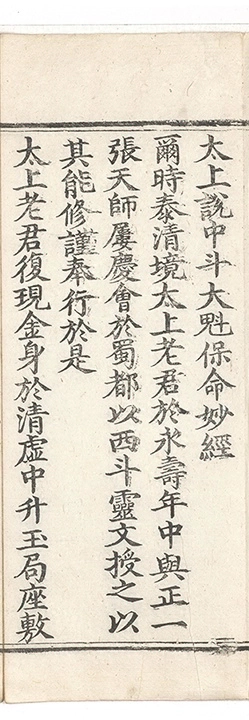 太上說中斗大魁保命妙經
爾時泰清境太上老君於永壽年中與正一
張天師屢慶會於蜀都以西斗靈文授之以
其能修謹奉行於是
太上老君復現金身於清虛中升玉局座敷